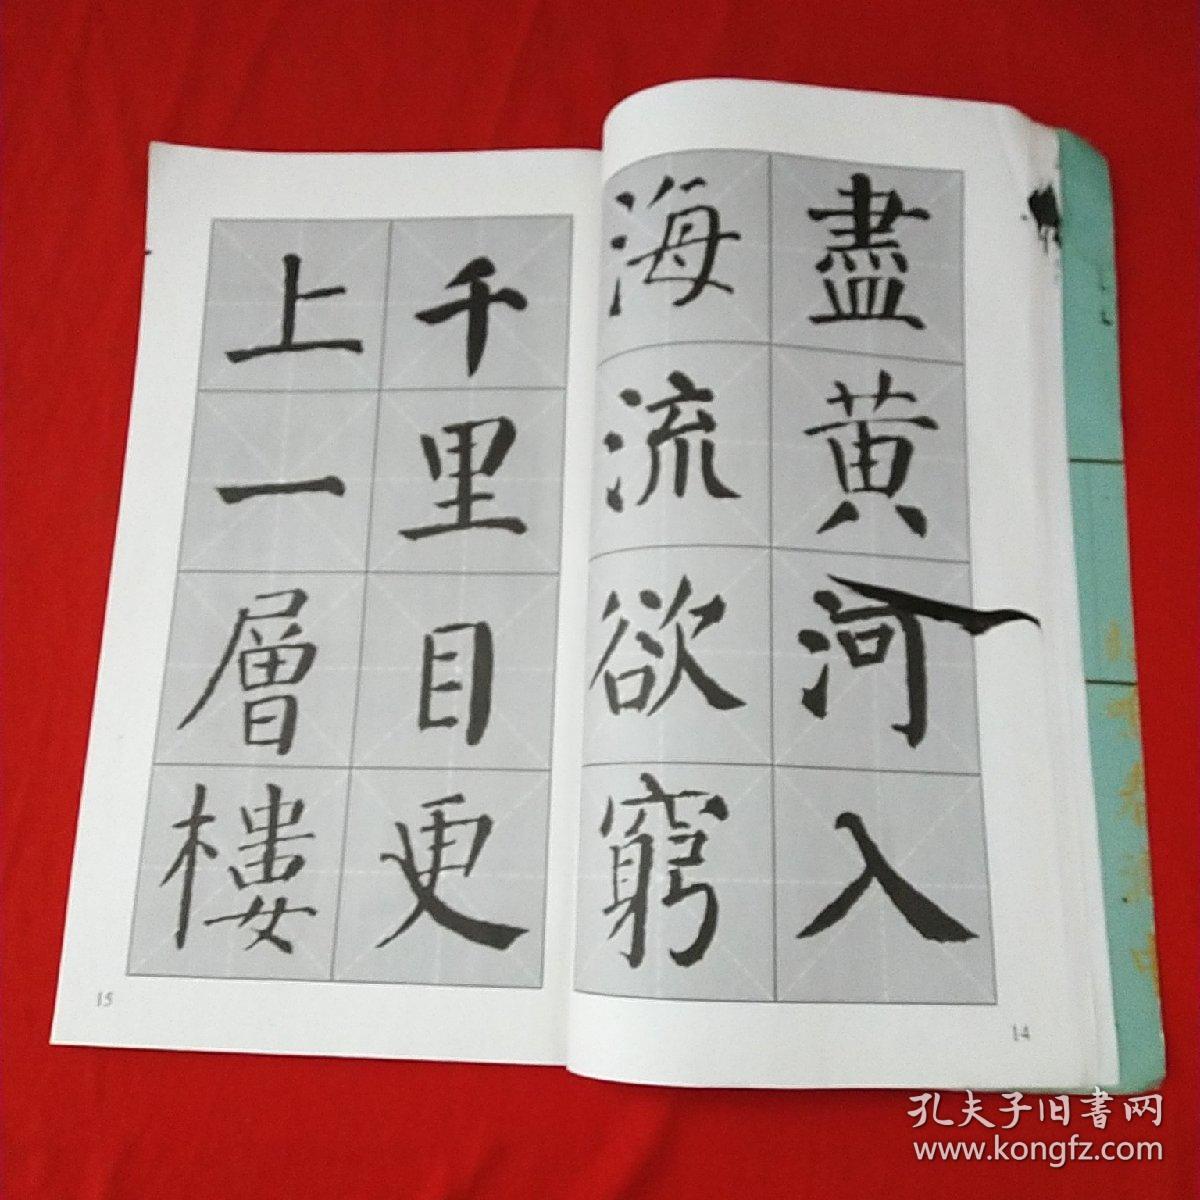 盡黄河入
海流欲窮
14
千里目更
上一層樓
15
孔夫子旧書网
www.kongfz.com